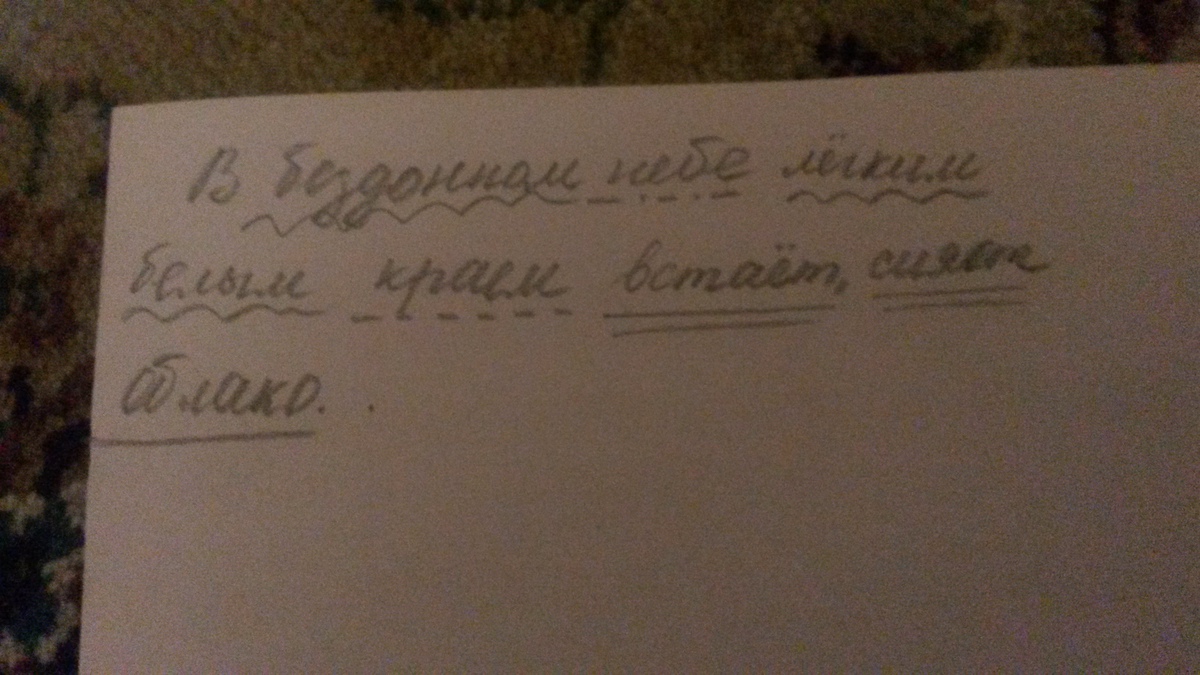 В бездонном небе лёгким
белым краем встаёт, сияет
облако.